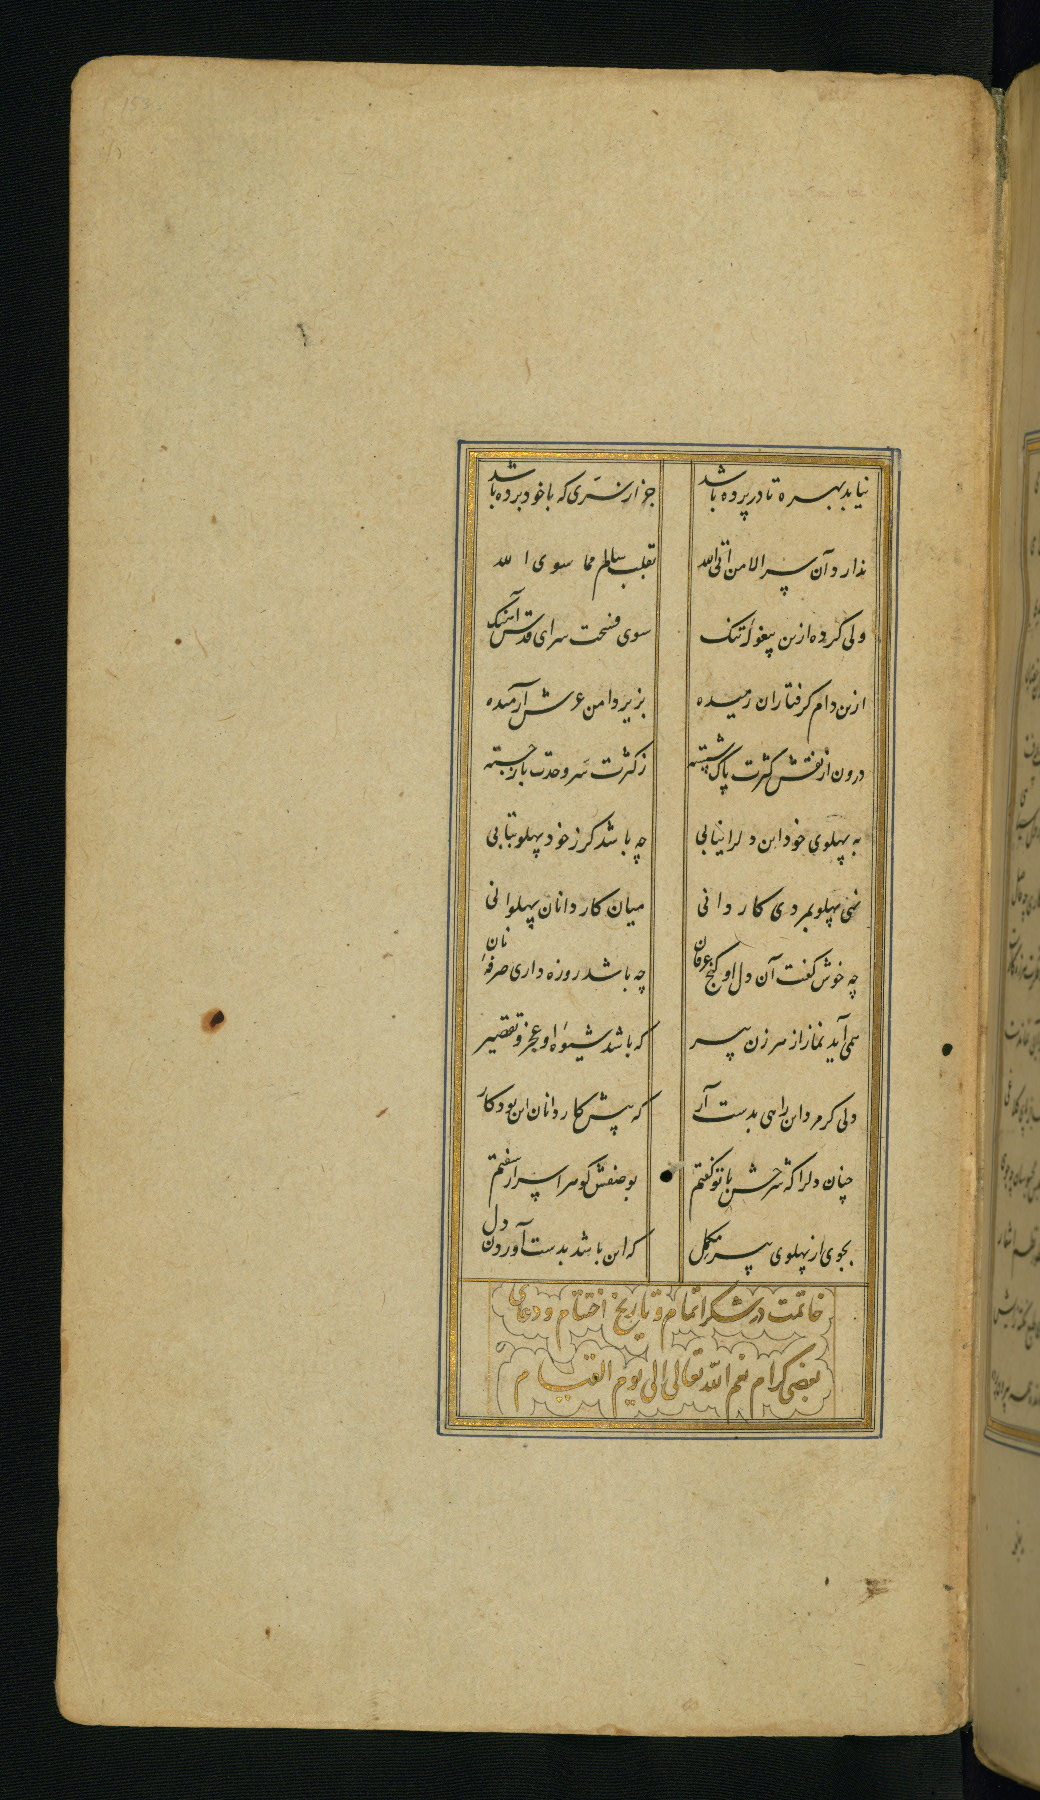 نیابد بهره تا در پرده باشد جز ار سرّی که با خود برده باشد
ندارد آن سر الا من اتی الله بقلب سالم مما سوی الله
ولی کرده ازین پیغولهٔ تنک سوی فسحت سرای قدس آهنک
ازین دام گرفتاران رمیده بزیر دامن عرش آرمیده
درون از نقش کثرت پاک شسته ز کثرت سر وحدت باز جسته
به پهلوی خود این دل را نیابی چه باشد کر ز خود پهلو بتابی
نهی پهلو بمردی کاردانی میان کاردانان پهلوانی
چه خوش گفت آن دل او گنج عرفان چه باشد روزه داری صرفهٔ نان
همی آید نماز از هر زن پیر که باشد شیوهٔ او عجز و تقصیر
ولی کر مردی این راهی بدست آر که پیش کاردانان این بود کار
چنان دل را که شرحش با تو گفتم بوصفش گوهر اسرار سفتم
بجوی از پهلوی پیر مکمل که این باشد بدست آوردن دل
خاتمت در شکر اتمام و تاریخ اختتام و دعای
بعضی کرام نعم الله تعالی الی یوم القیام